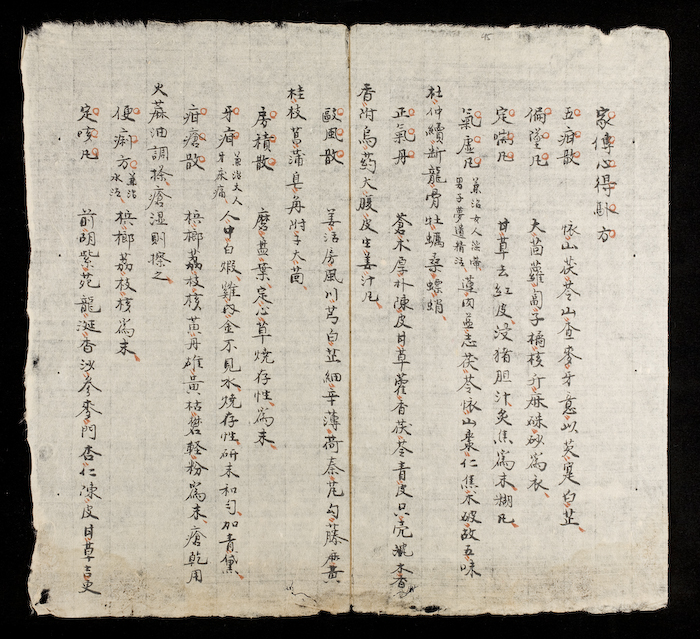 家傳心得卧方
五疳散 怀山茯苓山查麥牙意以芡寔白芷
偏墜凡 大茴蘿蔔子橘核亦麻硃砂為衣
定喘凡 甘草去紅皮浸猪胆汁炙焦為末糊凡
氣虛凡 兼治女人滛帶
男子夢遺精活 蓮肉益志茯苓怀山棗仁焦术破故五味
杜仲續斷龍骨牡蠣桑螵蛸
正氣丹 蒼术厚朴陳皮甘草藿香茯苓青皮只壳木香
香附烏葯大腹皮生姜汁凡
敺風散 姜活房風川芎白芷細辛薄荷秦艽勾藤麻黃
桂枝菖蒲皂角附子大茴
疳積散 磨盘葉定心草燒存性為末
牙疳 兼治大人
牙床痛 人中白煅雞內金不見水燒存性研末和勻加青黛
疳瘡散 梹榔荔枝核黃丹雄黃枯礬輕粉為末瘡乾用
火麻油調搽瘡湿則擦之
便痢方 兼治
水泻 梹榔荔枝核為末
定咳凡 前胡紫苑龍涎香沙參麥門杏仁陳皮甘草吉更